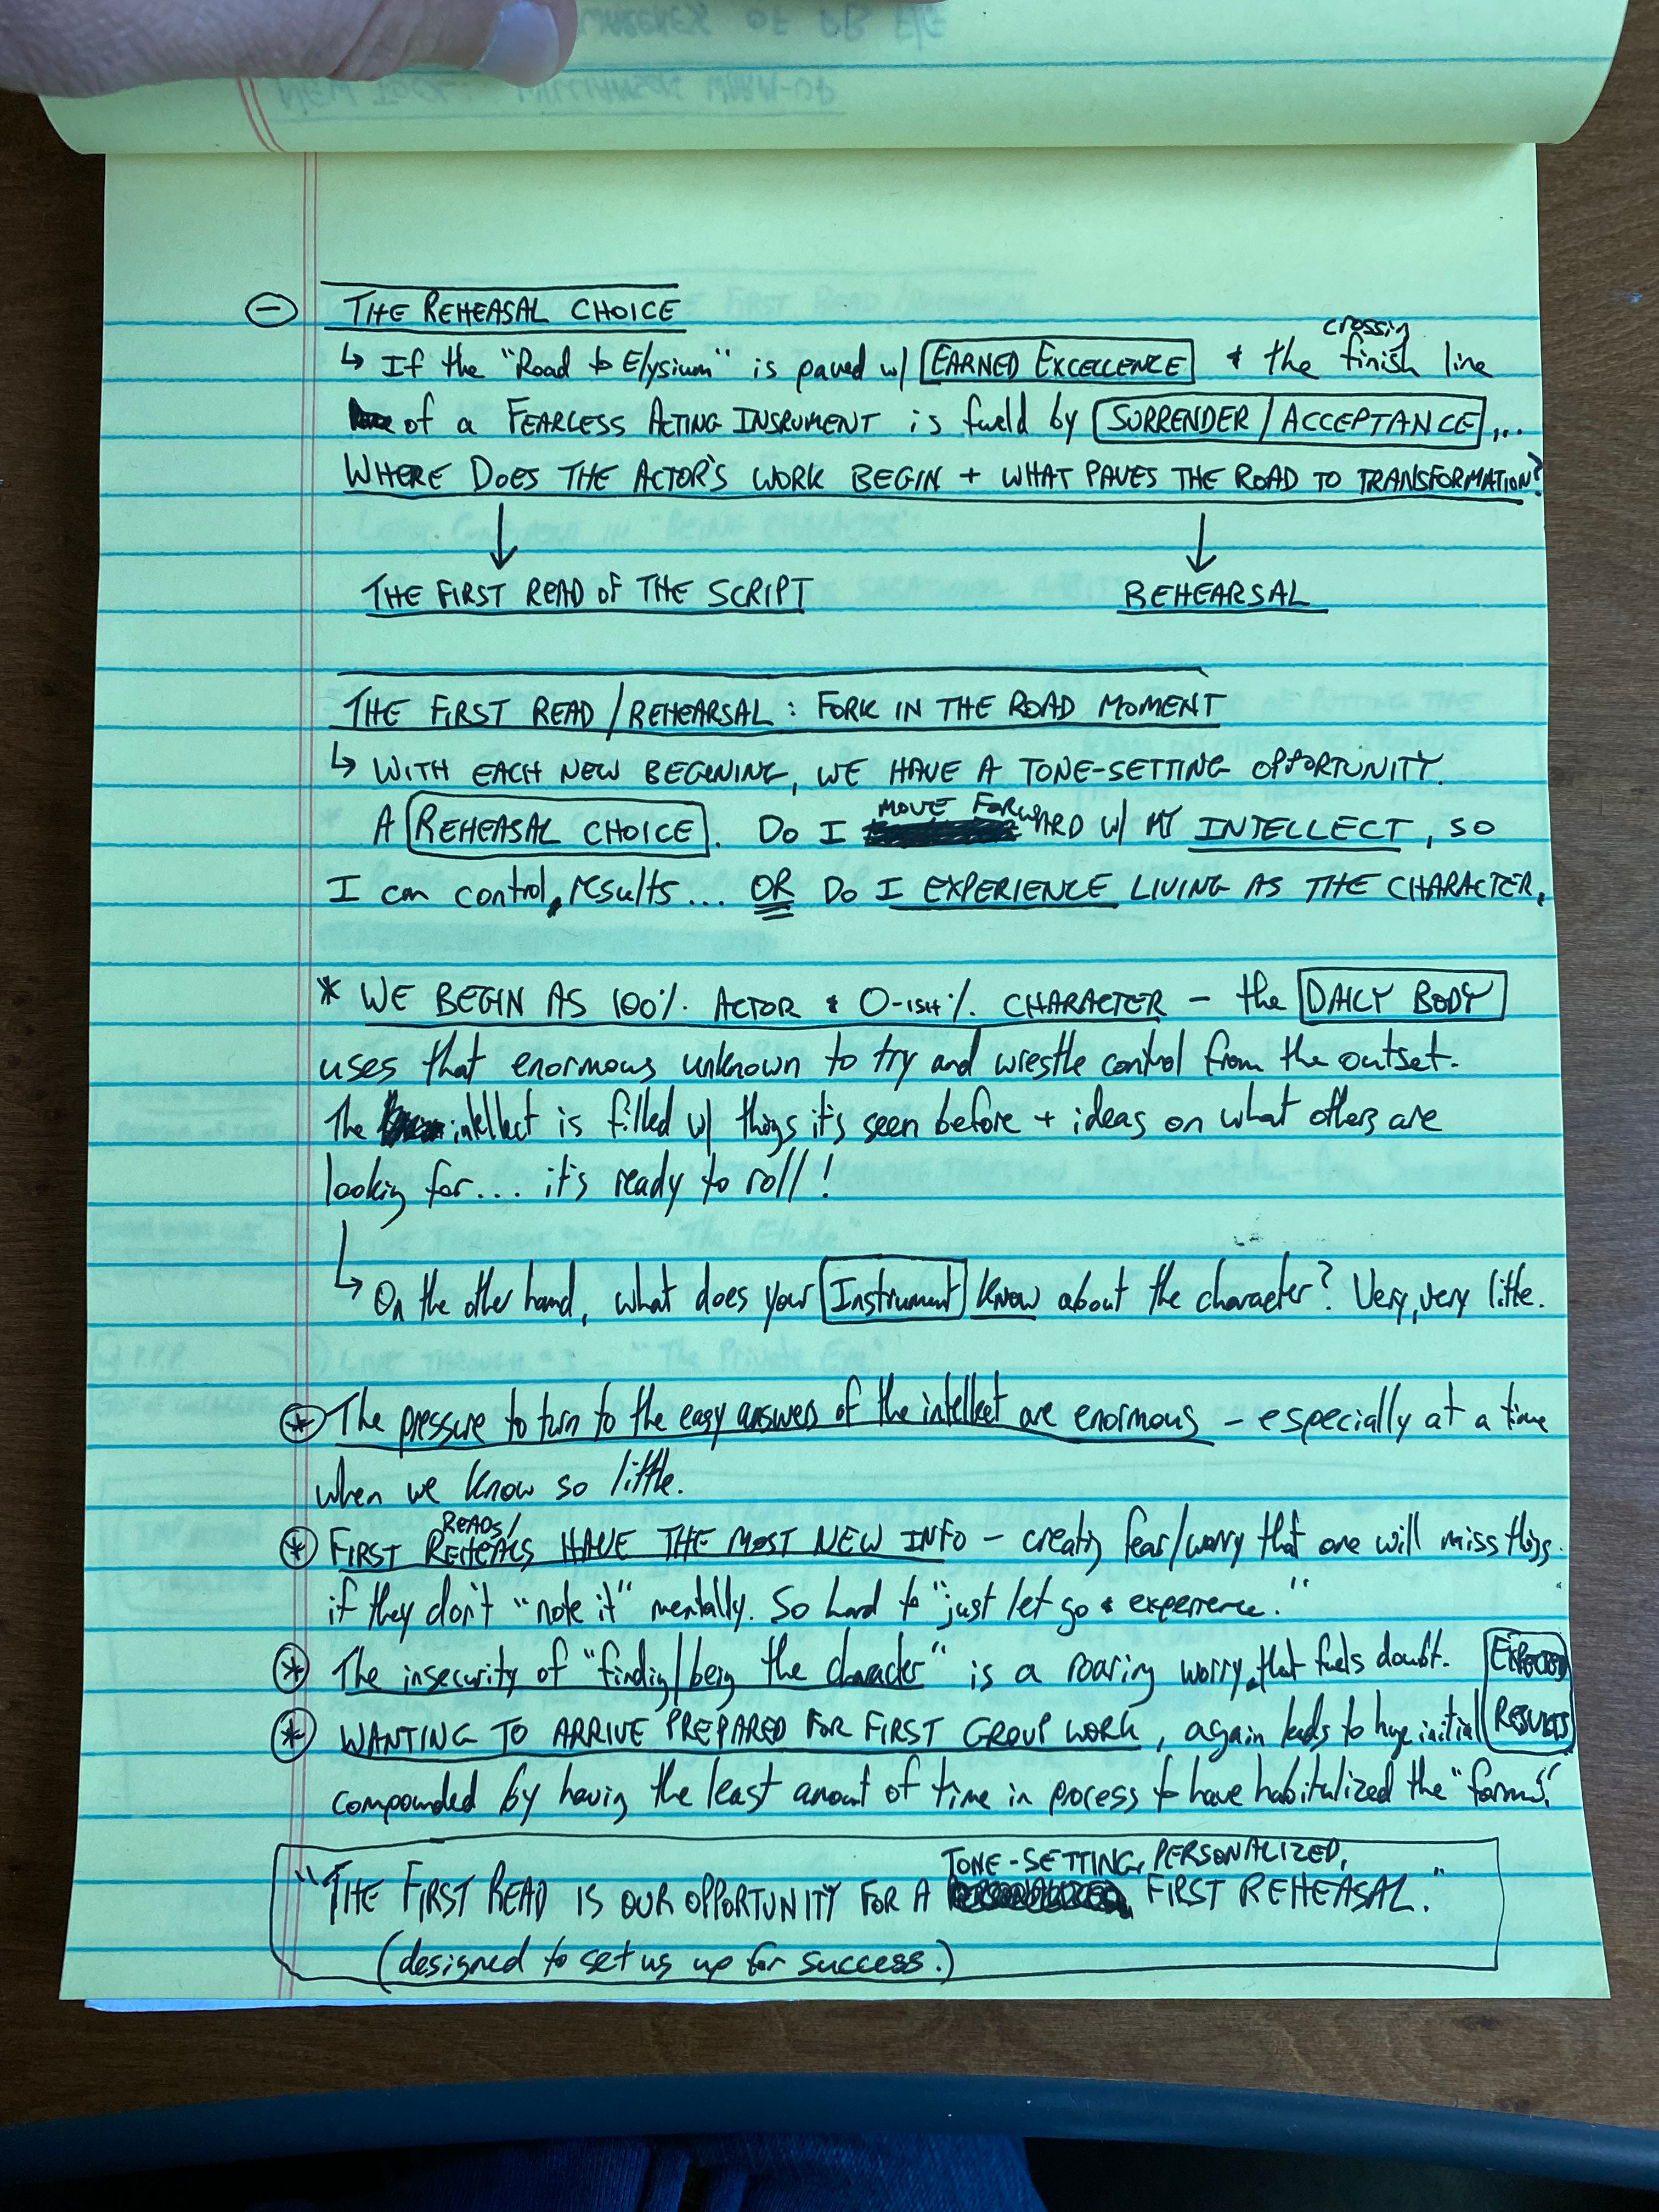 THE REHEASAL CHOICE
↳ If the "Road to Elysium" is paved w/ EARNED EXCELLENCE & the crossing finish line
of a FEARLESS ACTING INSRUMENT is fueld by SURRENDER / ACCEPTANCE...
WHERE DOES THE ACTOR'S WORK BEGIN + WHAT PAVES THE ROAD TO TRANSFORMATION?
↓ ↓
THE FIRST READ OF THE SCRIPT REHEARSAL
THE FIRST READ / REHEARSAL: FORK IN THE ROAD MOMENT
↳ WITH EACH NEW BEGINING, WE HAVE A TONE-SETTING OPPORTUNITY.
A REHEASAL CHOICE. DO I MOVE FORWARD W/ MY INTELLECT, SO
I can control results... OR DO I EXPERIENCE LIVING AS THE CHARACTER.
* WE BEGIN AS 100% ACTOR & 0-ISH% CHARACTER - the DAILY BODY
uses that enormous unknown to try and wrestle control from the outset.
The intellect is filled w/ things it's seen before + ideas on what others are
looking for... it's ready to roll!
↳ On the other hand, what does your Instrument know about the character? Very, very little.
* The pressure to turn to the easy answers of the intellect are enormous - especially at a time
when we know so little.
* FIRST READS/ REHEALS HAVE THE MOST NEW INFO - creating fear/worry that one will miss things
if they don't "note it" mentally. So hard to "just let go & experience."
* The insecurity of "finding/being the character" is a roaring worry that fuels doubt.
* WANTING TO ARRIVE PREPARED FOR FIRST GROUP WORK, again leads to huge initial EXPECTED RESULTS
compounded by having the least amount of time in process to have habitualized the "forms."
"THE FIRST READ IS OUR OPPORTUNITY FOR A TONE-SETTING, PERSONALIZED, FIRST REHEASAL."
(designed to set us up for success.)